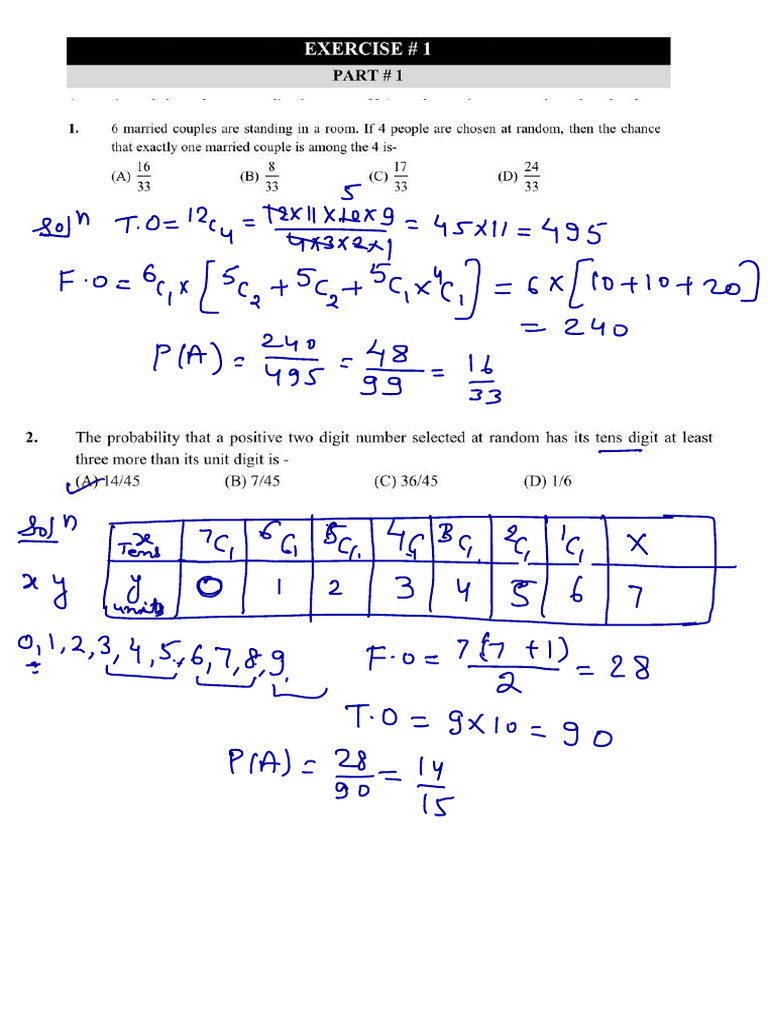 EXERCISE # 1
PART # 1
1. 6 married couples are standing in a room. If 4 people are chosen at random, then the chance
that exactly one married couple is among the 4 is-
(A) 16/33 (B) 8/33 (C) 17/33 (D) 24/33
Solⁿ T.O = ¹²C₄ = 12×11×10×9 / 4×3×2×1 = 45×11 = 495
5
F.O = ⁶C₁ × [⁵C₂ + ⁵C₂ + ⁵C₁ × ⁴C₁] = 6 × [10+10+20]
= 240
P(A) = 240/495 = 48/99 = 16/33
2. The probability that a positive two digit number selected at random has its tens digit at least
three more than its unit digit is -
(A) 14/45 (B) 7/45 (C) 36/45 (D) 1/6
Solⁿ
x Tens ⁷C₁ ⁶C₁ ⁵C₁ ⁴C₁ ³C₁ ²C₁ ¹C₁ X
x y
y units 0 1 2 3 4 5 6 7
0,1,2,3,4,5,6,7,8,9
F.O = 7(7+1)/2 = 28
T.O = 9×10 = 90
P(A) = 28/90 = 14/15